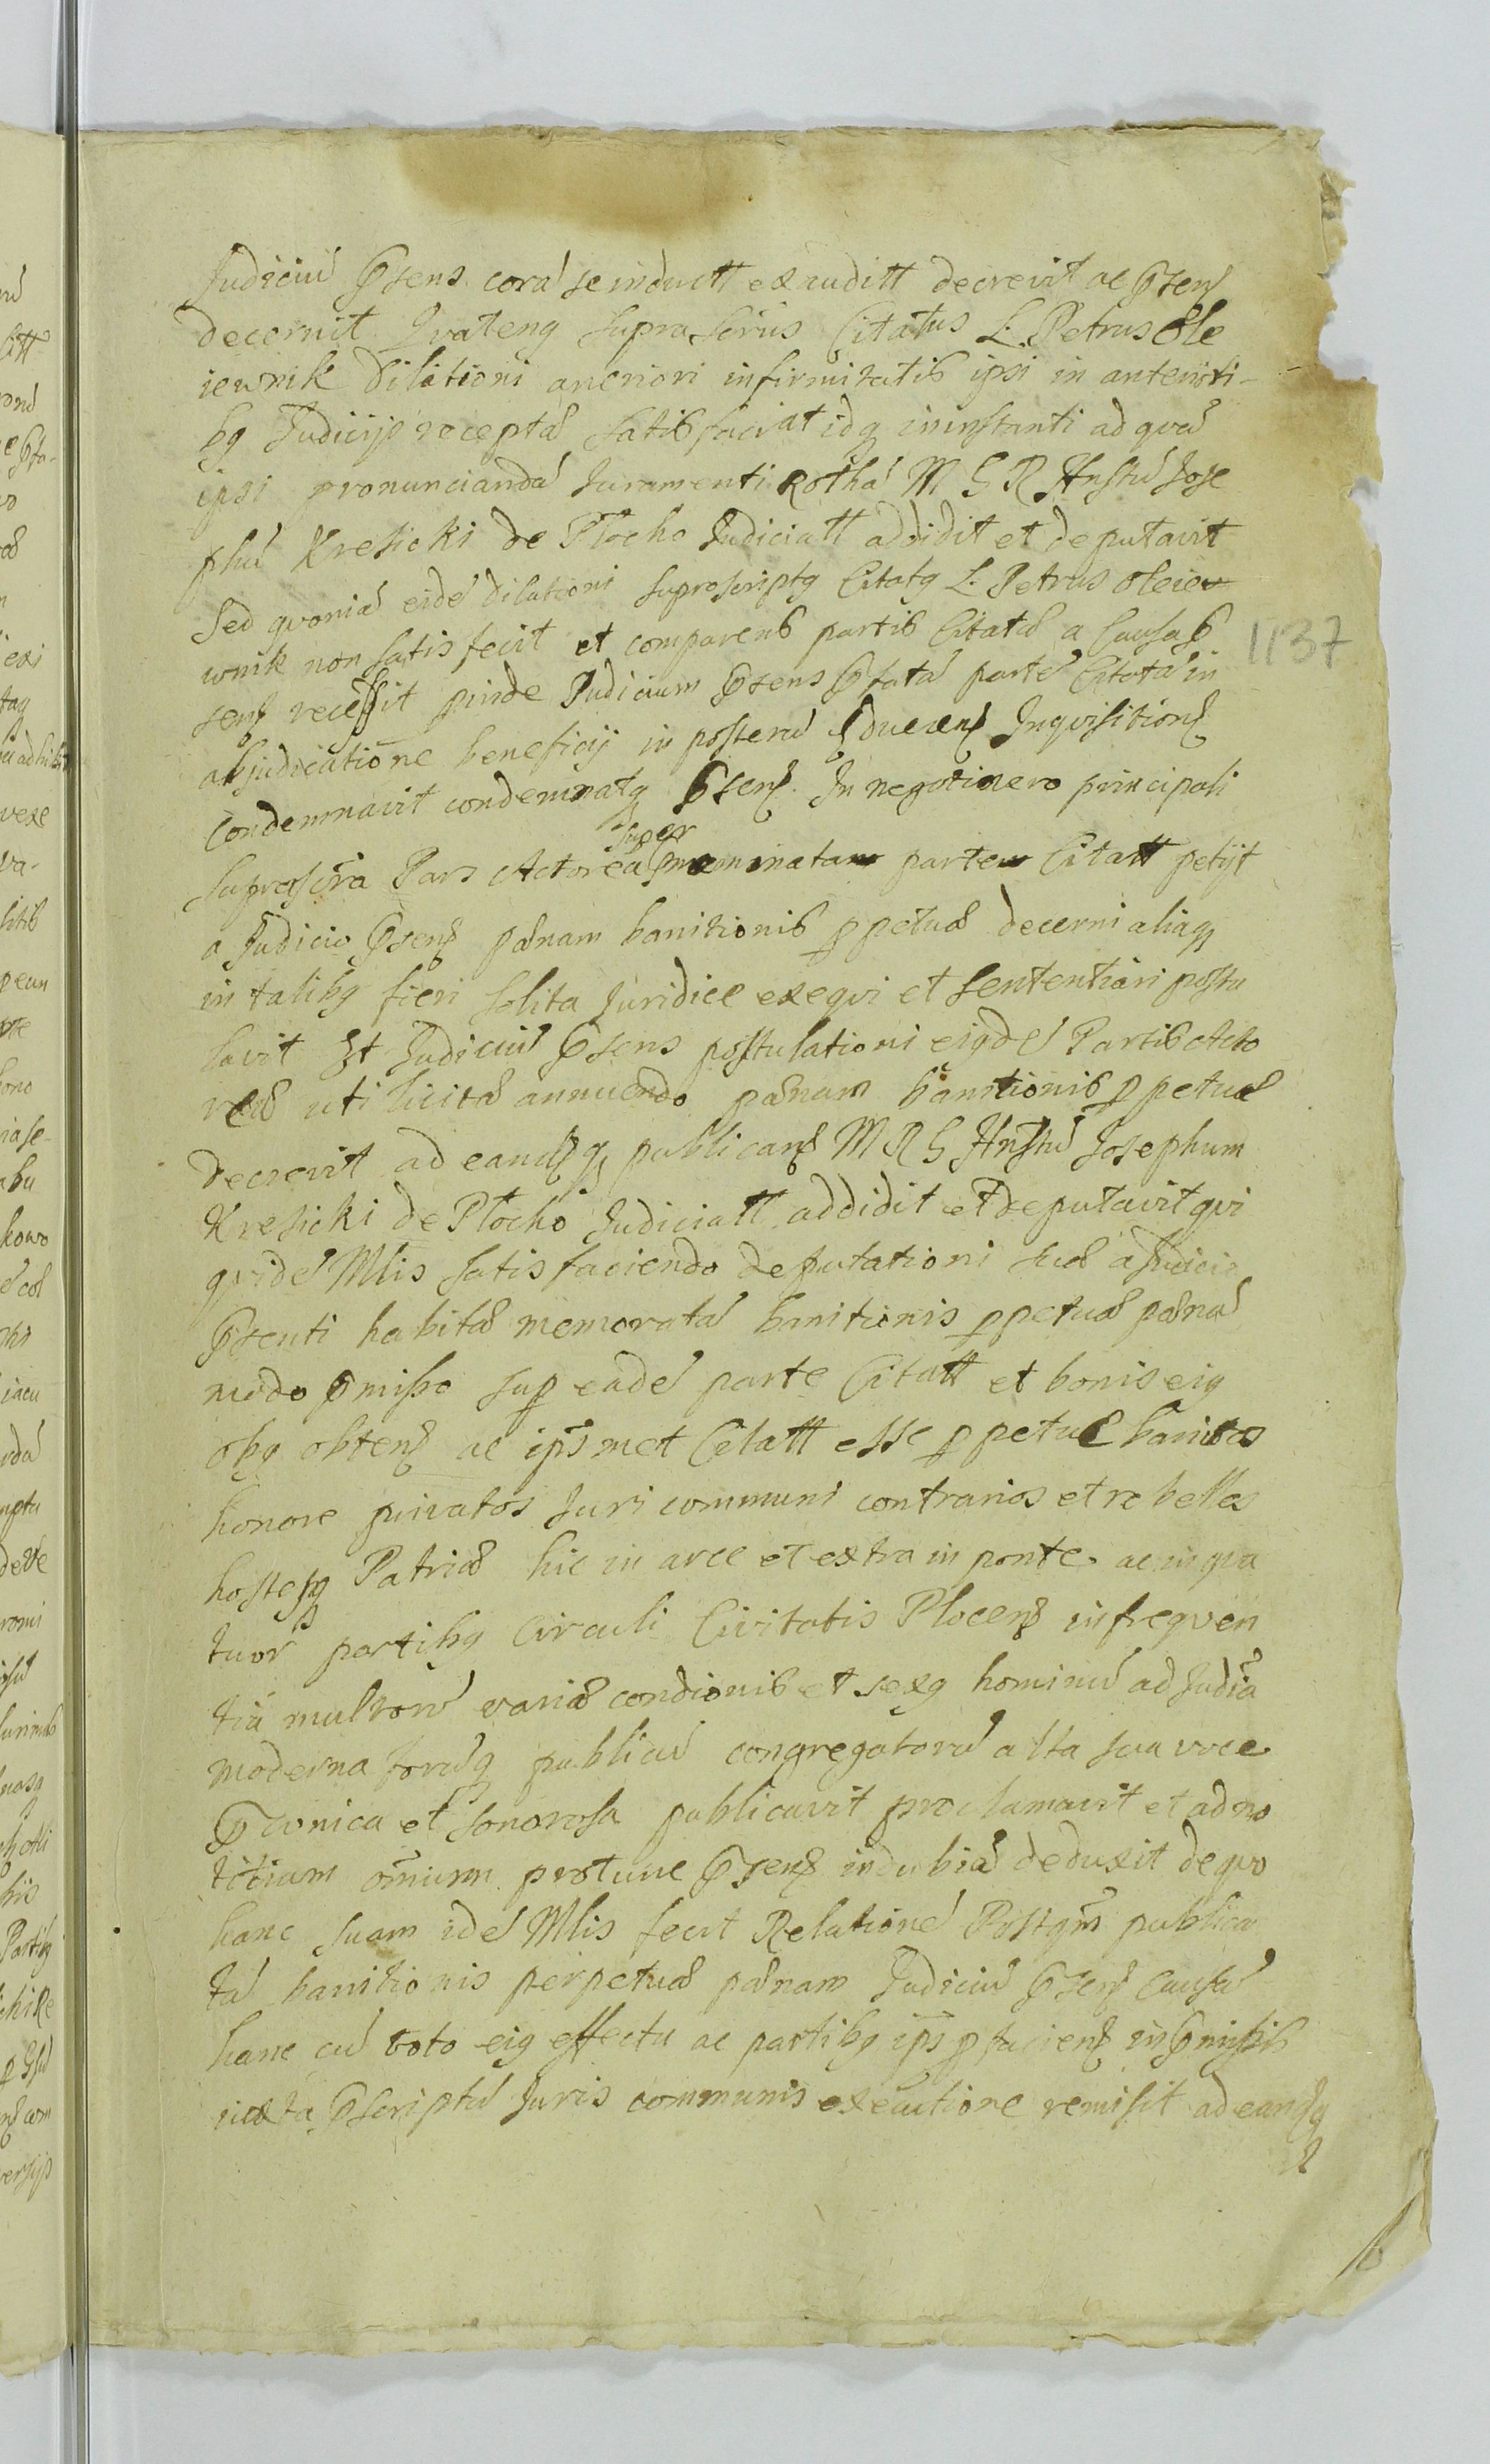 Judiciu͂ Pꝛsens cora͂ se inductt exauditt decrevit ac Pꝛsenꝭ
decernit Qvatenꝰ supra scr͂us Citatus L. Petrus Ole
iewnik dilationi anteriori infirmitatis ipsi in anteristi-
bꝰ Judicijs receptæ satisfaciat idqꝫ in instanti ad qva͂
ipsi pronunciandã Juramenti Rotha͂ M G R Hnstu͂ Jose
phu͂ Kresicki de Płocho Judiciatt addidit et deputavit
Sed qvonia͂ eide͂ dilationi suprascriptꝰ Citatꝰ L. Petrus Oleie
wnik non satisfecit et comparens partis Citatæ a Causa Pꝛ
senꝭ recessit proinde Judicium Pꝛsens Pꝛfata͂ parte͂ Citata͂ in
abjudicatio͂ne beneficij in posteru͂ educenꝭ Inqvisitionꝭ
condemnavit condemnatqꝫ Pꝛsenꝭ. In negotio vero principali
suprascr͂a Pars Actorea super Pꝛnominatam partem Citatt petijt
a Judicio Pꝛsenꝭ pænam banitionis ꝑpetuæ decerni aliaqꝫ
in talibꝰ fieri solita Juridice exeqvi et sententiari postu
lavit Et Judiciu͂ Pꝛsens postulationi eiꝰde͂ Partis Acto
reæ uti licitæ annuendo pænam banitionis ꝑpetuæ
decrevit ad eamqꝫ publicanꝭ M R G Hnstu͂ Josephum
Kresicki de Płocho Judiciatt addidit et deputavit qvi
qvide͂ Mlis satisfaciendo deputationi suæ a Judicio
Pꝛsenti habitæ memorata͂ banitionis ꝑpetuæ pæna͂
modo Pꝛmisso suꝑ eade͂ parte Citatt et bonis eiꝰ
oibꝰ obtenꝭ ac ip͂smet Citatt esse ꝑpetue banitos
honore privatos Juri communi contrarios et rebelles
hostesqꝫ Patriæ hic in arce et extra in ponte ac in qva
tuor partibꝰ Circuli Civitatis Plocenꝭ in freqven
tia͂ multoru͂ variæ condi͂onis et sexꝰ hominu͂ ad Judi͂a
moderna foru͂qꝫ publicu͂ congregatoru͂ alta sua voce
Pꝛconica et sonorosa publicavit proclamavit et ad no
titiam o͂mnium protunc Pꝛsenꝭ indubia͂ deduxit de qvo
hanc suam ide͂ Mlis fecit Relatione͂ Postqm͂ publica
ta͂ banitionis perpetuæ pænam Judiciu͂ Pꝛsenꝭ Causa͂
hanc cu͂ toto eiꝰ effectu ac partibꝰ ip͂s ꝓ facienꝭ in Pꝛmissis
iuxta Pꝛscriptu͂ Juris communis executione remisit ad eamqꝫ
1137